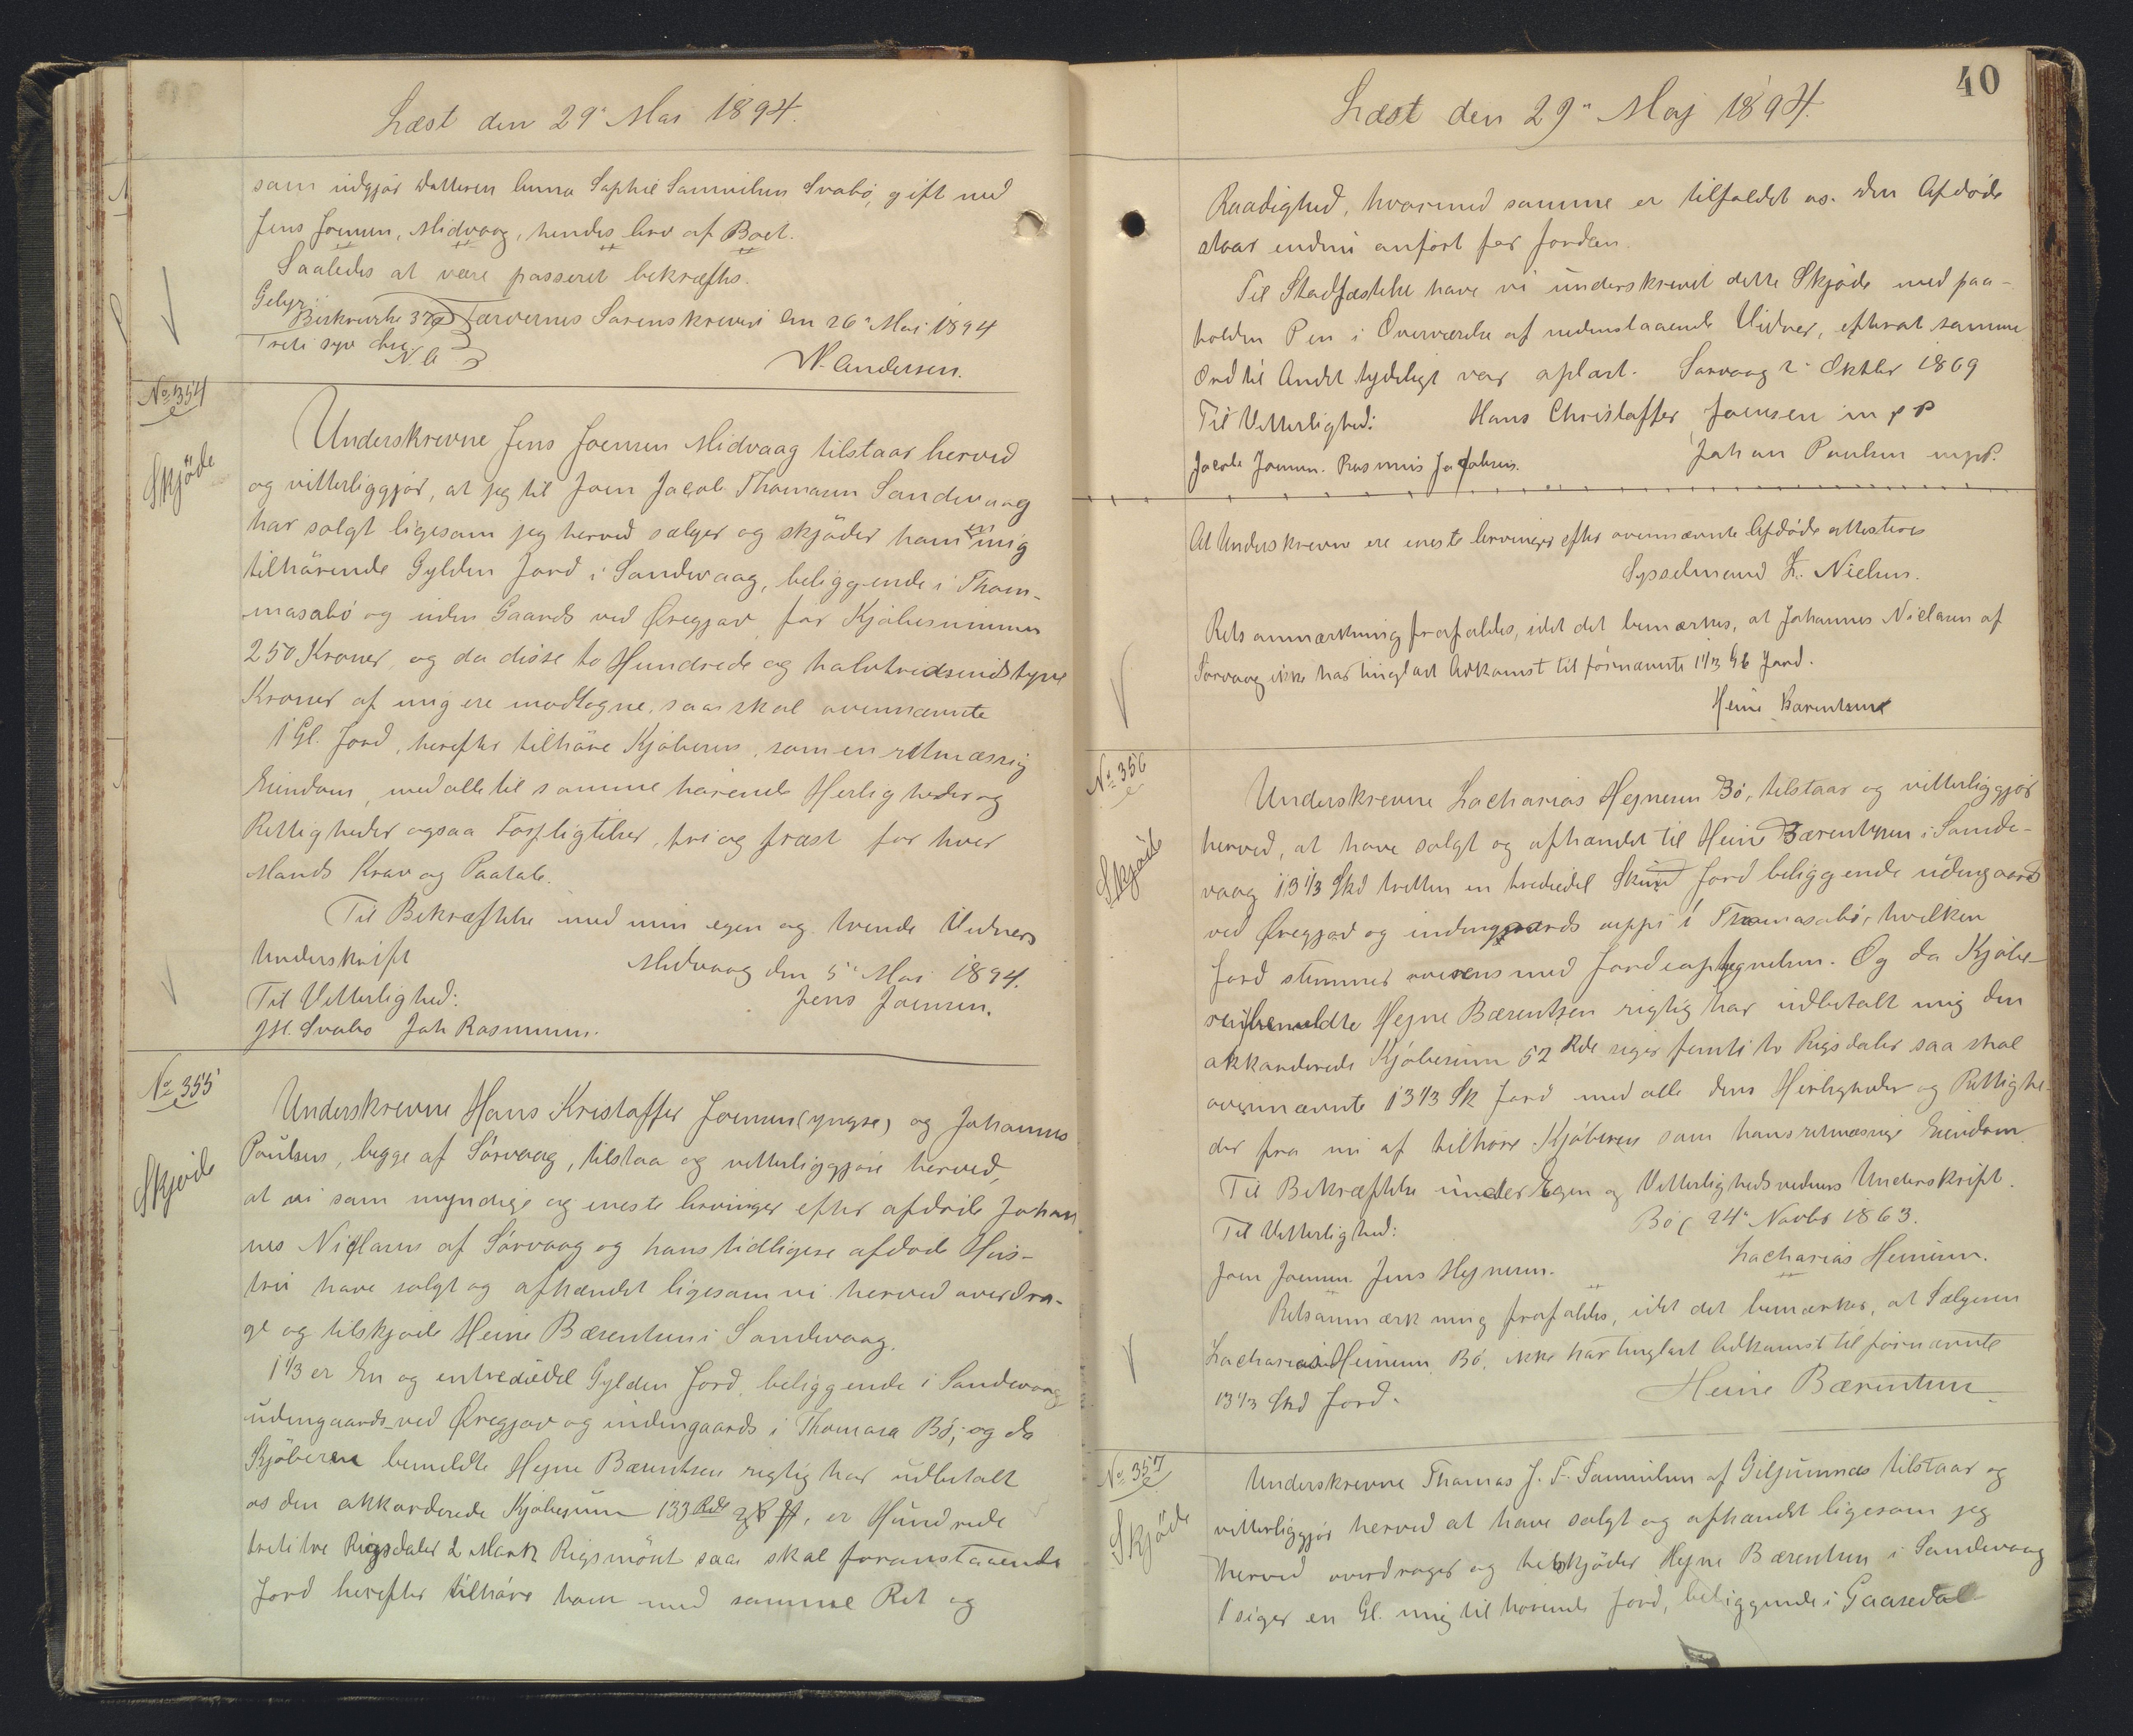 Læst den 29' Mai 1894.
som udgjør Datteren Anna Sophie Samuelsen Svabø, gift med
Jens Joensen, Midvaag, hendes Arv af Boet.
Saaledes at være passeret bekræftes.
Gebyr:
Beskrivelse 37 Færøernes Sorenskriveri den 26' Mai 1894
Treti syv Øre.
N. A
N. Andersen.
No 354
Skjöde
Underskrevne Jens Joensen Midvaag tilstaar herved
og vitterliggjør, at jeg til Joen Jacob Thomasen Sandevaag
har solgt ligesom jeg herved sælger og skjøder ham en mig
tilhørende Gylden Jord i Sandevaag, beliggende i Thom-
masabø og uden Gaards ved Øregjov for Kjøbesummen
250 Kroner, og da disse to Hundrede og halvtredsindstyve
Kroner af mig ere modtagne, saa skal ovennævnte
1 Gl. Jord, herefter tilhøre Kjøberen, som en retmæssig
Eiendom, med alle til samme hørende Herligheder og
Rettigheder ogsaa Forpligtelser, fri og frast for hver
Mands Krav og Paatale.
Til Bekræftelse med min egen og tvende Vidners
Underskrift Midvaag den 5' Mai 1894.
Til Vitterlighed: Jens Joensen.
JH. Svabo Joh Rasmussen.
No 355
Skjøde
Underskrevne Hans Kristoffer Joensen (yngre) og Johannes
Poulsen, begge af Sørvaag, tilstaa og vitterliggjøre herved,
at vi som myndige og eneste Arvinger efter afdøde Johan
nes Niclasen af Sørvaag og hans tidligere afdøde Hus-
tru have solgt og afhændet ligesom vi herved overdra-
ge og tilskjøde Heine Bærentsen i Sandevaag.
1 1/3 er En og entrediedel Gylden Jord, beliggende i Sandevaag
udengaards ved Øregjov og indengaards i Thomasa Bø; og da
Kjøberen bemeldte Hejne Bærentsen rigtig har udbetalt
os den akkorderede Kjøbesum 133 Rdl 2 , er Hundrede
treti tre Rigsdaler 2 Mark Rigsmönt saa skal foranstaaende
Jord herefter tilhøre ham med samme Ret og
40
Læst den 29' Maj 1894.
Raadighed, hvormed samme er tilfaldet os. Den Afdøde
staar endnu anført for Jorden.
Til Stadfæstelse have vi underskrevet dette Skjøde med paa-
holden Pen i Overværelse af nedenstaaende Vidner, efterat samme
Ord til Andet tydeligt var oplæst. Sørvaag 2' Oktbr 1869
Til Vitterlighed: Hans Christoffer Joensen m p P
Jacob Joensen. Rasmus Jacobsen. Johan Poulsen mpP.
At Underskrevne ere eneste Arvinger efter ovennævnte Afdøde attesteres
Sysselmand Z. Nielsen.
Retsanmærkning frafaldes, idet det bemærkes, at Johannes Niclasen af
Sørvaag ikke har tinglæst Adkomst til førnævnte 1 1/3 Gl Jord.
Heine Bærentsen
No 356
Skjøde
Underskrevne Zacharias Hejnesen Bø, tilstaar og vitterliggjør
herved, at have solgt og afhændet til Heine Bærentsen i Sande-
vaag 13 1/3 Skd tretten en trediedel Skind Jord beliggende udengaards
ved Øregjov og indengaards uppi i Thomasabø, hvilken
Jord stemmer overens med Jordeoptegnelsen. Og da Kjøbe-
ren bemeldte Hejne Bærentsen rigtig har udbetalt mig den
akkorderede Kjøbesum 52 Rdl siger femti to Rigsdaler saa skal
ovennævnte 13 1/3 Sk Jord med alle dens Herligheder og Rettighe-
der fra nu af tilhøre Kjøberen som hans retmæssige Eiendom.
Til Bekræftelse under Egen og Vitterlighedsvidners Underskrift.
Til Vitterlighed: Bø, 24' Novbr 1863.
Joen Joensen. Jens Hejnesen. Zacharias Heinesen.
Retsanmærkning frafaldes, idet det bemærkes, at Sælgeren
Zacharias Heinesen Bø, ikke har tinglæst Adkomst til førnævnte
13 1/3 Skd Jord. Heine Bærentsen
No 357
Skjöde
Underskrevne Thomas J. F. Samuelsen af Giljumnæs tilstaar og
vitterliggjør herved at have solgt og afhændet ligesom jeg
herved overdrager og tilskjøder Hejne Bærentsen i Sandevaag
1 siger en Gl. mig tilhørende Jord, beliggende i Gaasedal